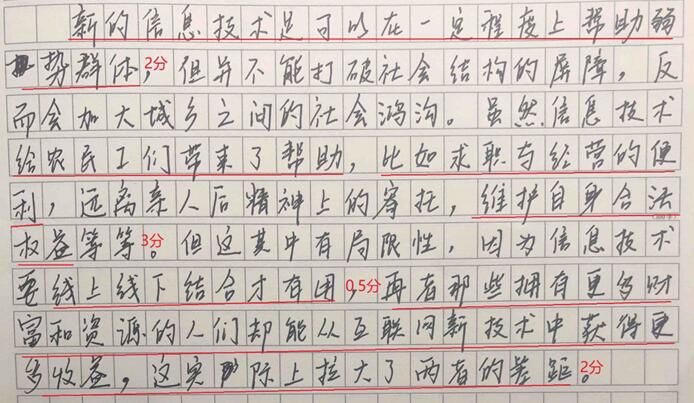 新的信息技术是可以在一定程度上帮助弱
势群体，2分但并不能打破社会结构的屏障，反
而会加大城乡之间的社会鸿沟。虽然信息技术
给农民工们带来了帮助，比如求职与经营的便
利，远离亲人后精神上的寄托，维护自身合法
权益等等。3分但这其中有局限性，因为信息技术
要线上线下结合才有用，0.5分再者那些拥有更多财
富和资源的人们却能从互联网新技术中获得更
多收益，这实际上拉大了两者的差距。2分